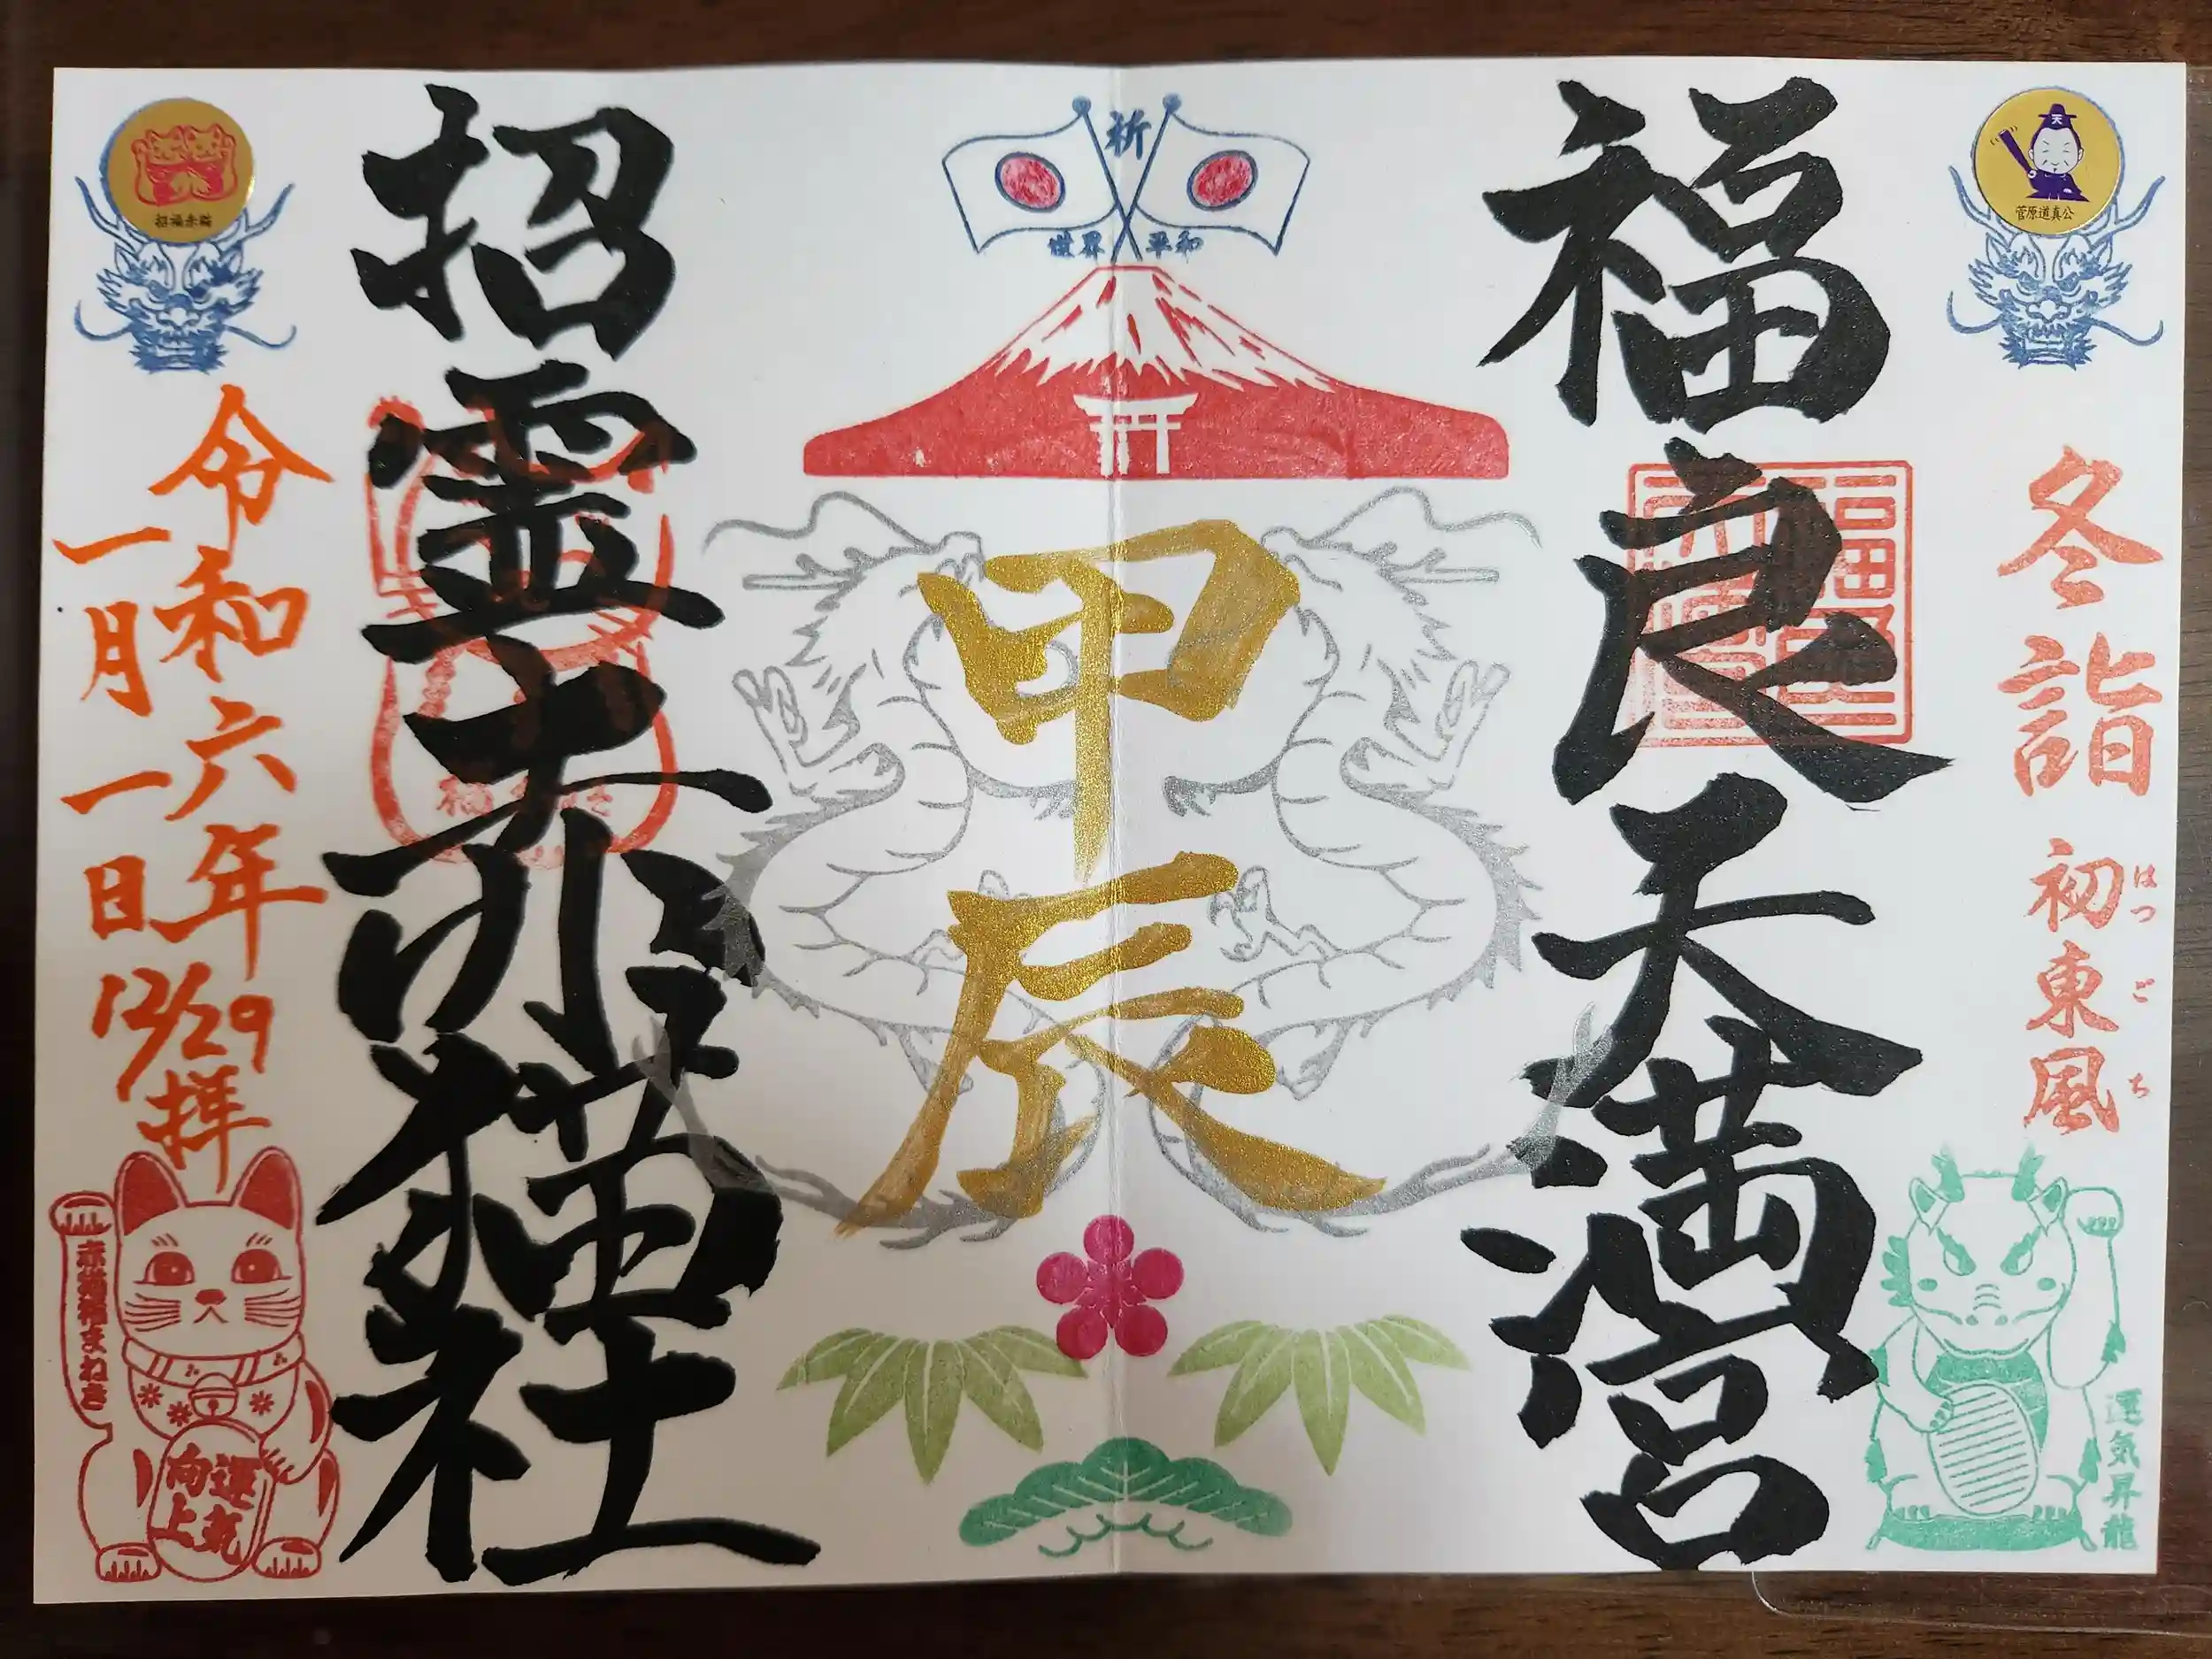 天
菅原道真公
冬詣
初東風
はつごち
運気昇龍
福良天満宮
祈
世界平和
甲辰
招霊赤猫社
招福赤猫
令和六年
一月一日
12/29拝
赤猫福まねき
運気
向上